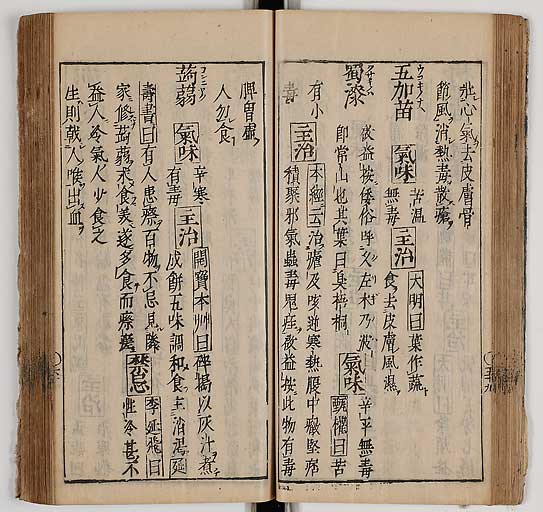 壯心氣去皮膚骨
節風消熱毒散瘡
五加苗 ウコギノナヘ
氣味 苦温無毒
主治 大明曰葉作蔬食去皮膚風濕
蜀漆 クサギノハ
啟益按倭俗呼久左木乃波
即常山也其葉曰臭梧桐
氣味 辛平無毒
甄權曰苦有小毒
主治 本經云治瘧及咳逆寒熱腹中癥堅痞
積聚邪氣蠱毒鬼疰啟益按此物有毒
脾胃虛
人勿食
蒟蒻 コンニャク
氣味 辛寒有毒
主治 開寶本艸曰碎搗以灰汁煮
成餅五味調和食主消渴
延壽書曰有人患瘵百物不忌見隣
家修蒟蒻求食美遂多食而瘵愈
禁忌 李延飛曰性冷甚不
益人冷氣人少食之
生則戟人喉出血